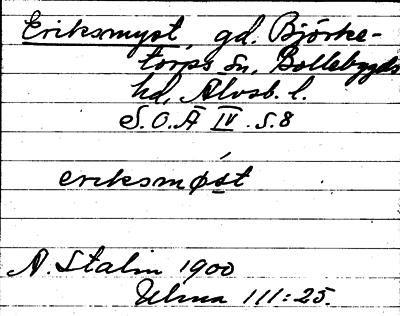 Eriksmyst, gd. Björke-
torps sn, Bollebygds
hd, Älvsb. l.
S.O.Ä IV. S.8
eriksmø̀st
A. Stalin 1900
Ulma 111:25.